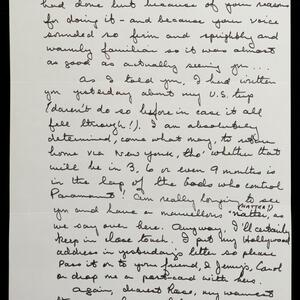 had done but because of your reasons
for doing it - and because your voice
sounded so firm and sprightly and
warmly familiar so it was almost
as good as actually seeing you ...
As I told you, I had written
you yesterday about my U.S. trip
(daren't do so before in case it all
fell through!). I am absolutely
determined, come what may, to return
home via New York, tho' whether that
will be in 3, 6 or even 9 months is
in the lap of the gods who control
Paramount! Am really longing to see
you and have a marvellous "natter", as
(CHATTER!)
we say over here. Anyway, I'll certainly
keep in close touch. I put my Hollywood
address in yesterday's letter so please
pass it on to your friend, Jenny's, Carol
or drop me a post-card with hers.
Again, dearest Rose, my warmest